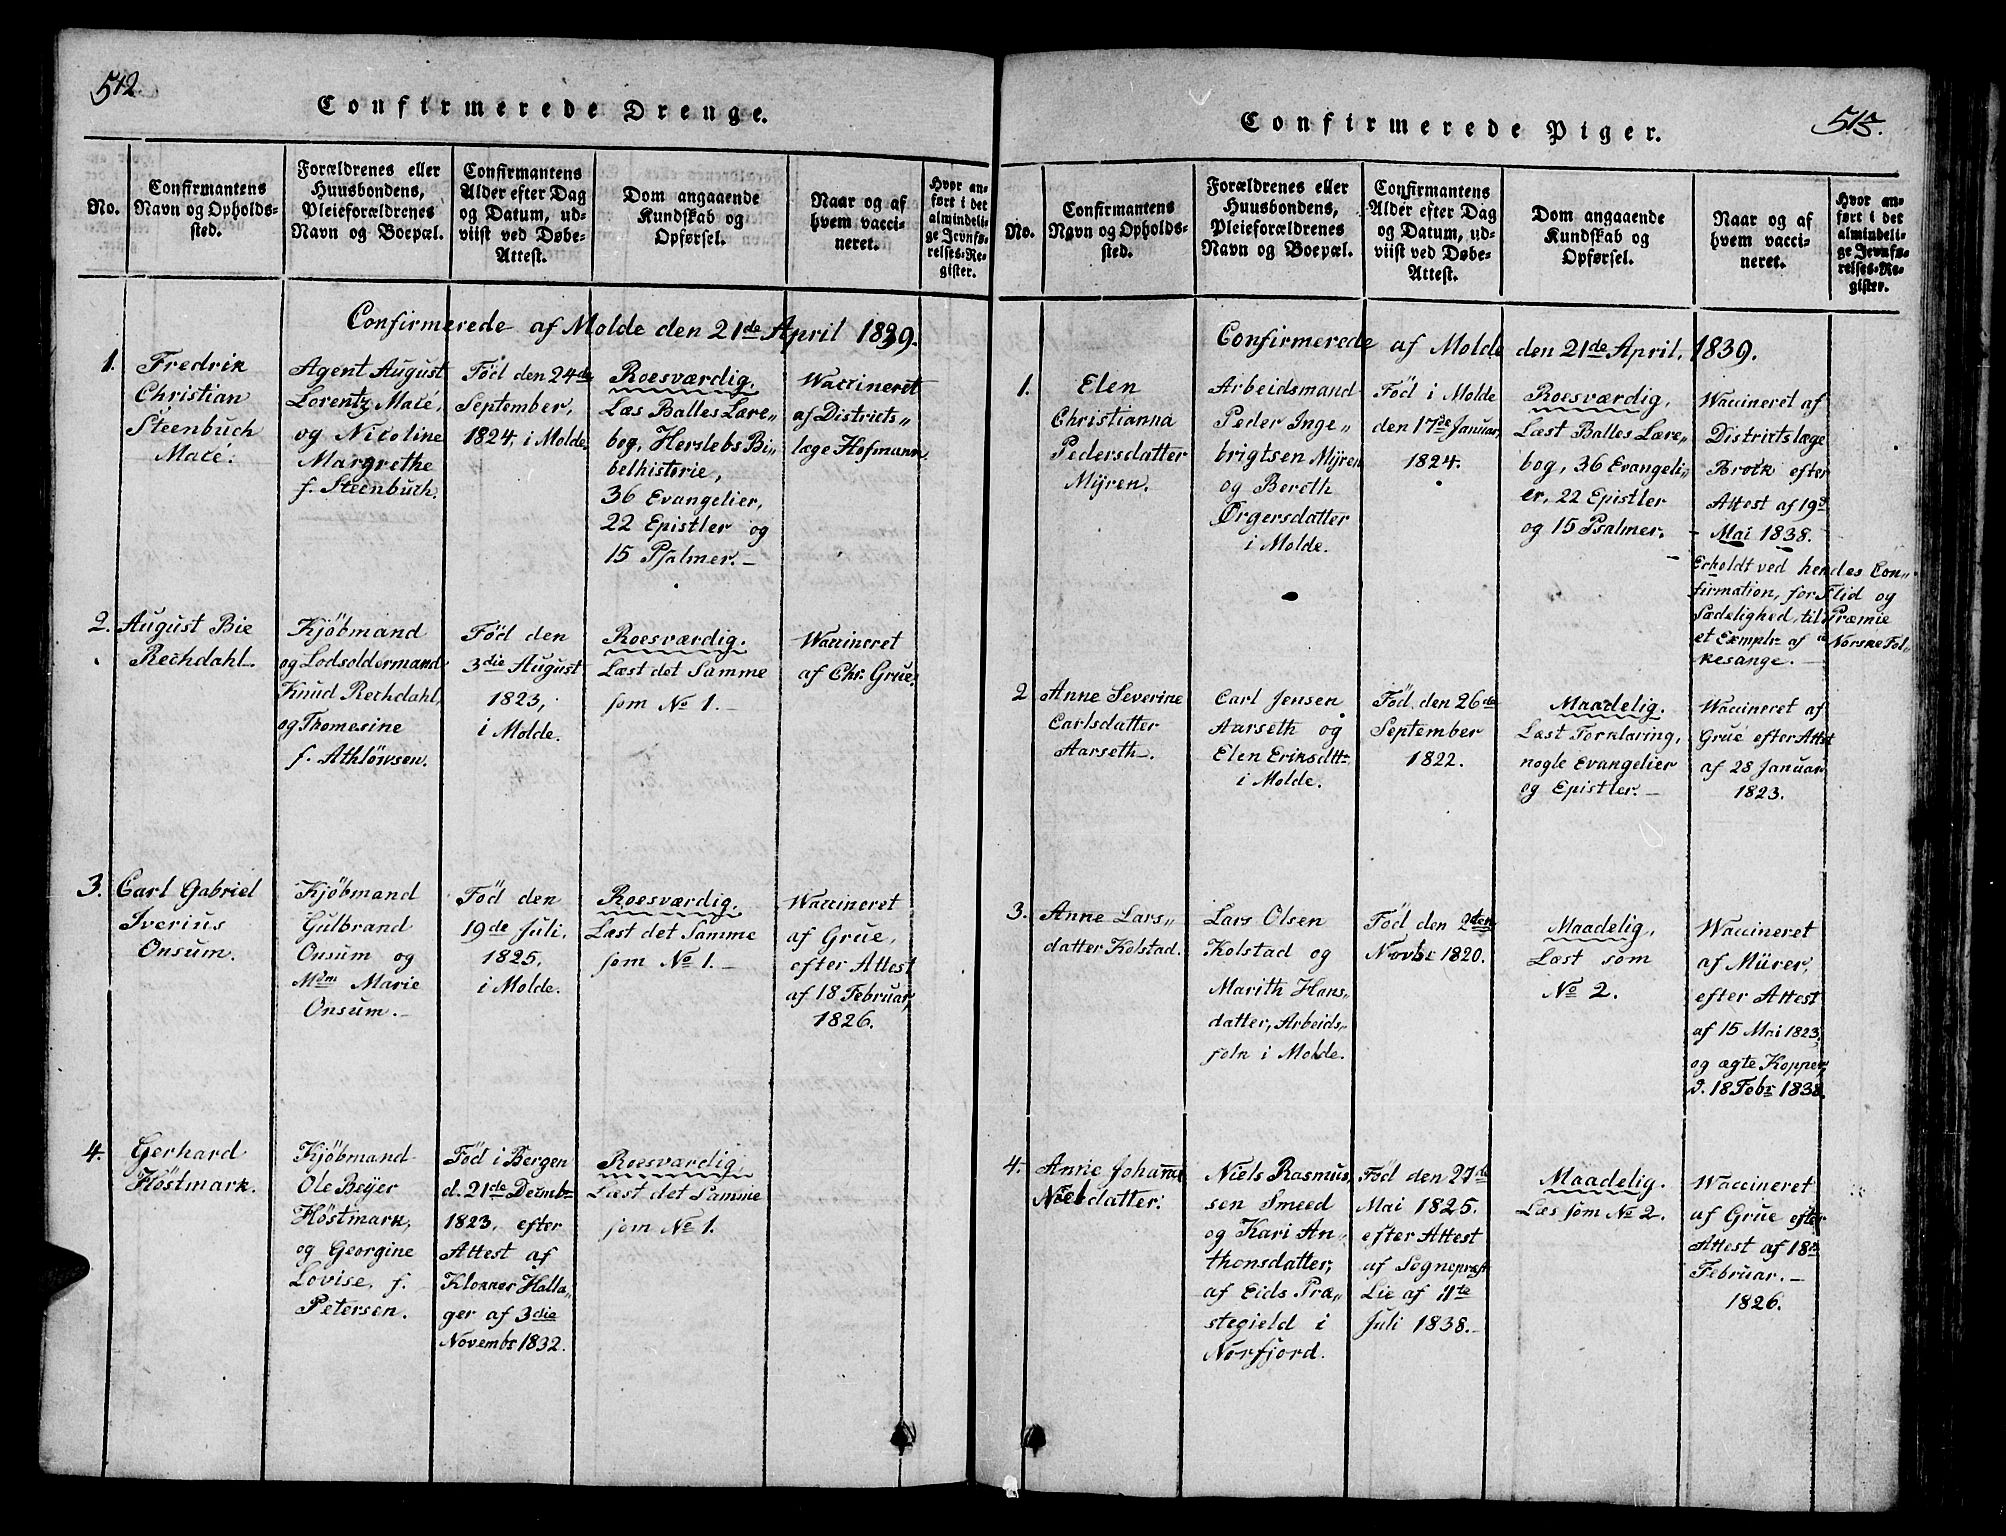 512.
Confirmerede Drenge.
No.
Confirmantens
Navn og Opholds-
sted.
Forældrenes eller
Huusbondens,
Pleieforældrenes
Navn og Boepæl.
Confirmantens
Alder efter Dag
og Datum, ud-
viist ved Døbe-
Attest.
Dom angaaende
Kundskab og
Opførsel.
Naar og af
hvem vacci-
neret.
Hvor an-
ført i det
almindeli-
ge Jevnfø-
relses-Re-
gister.
Confirmerede af Molde den 21de April 1839.
1.
Fredrik
Christian
Steenbuch
Maté.
Agent August
Lorentz Maté,
og Nicoline
Margrethe
f. Steenbuch.
Fød den 24de
September,
1824, i Molde.
Roesværdig.
Læs Balles Lære-
bog, Herslebs Bi-
belhistorie,
36 Evangelier,
22 Epistler og
15 Psalmer.—
Waccineret
af Districts„
læge Hofmann.
2.
August Bie
Rechdahl.
Kjöbmand
og Lodsoldermand
Knud Rechdahl,
og Thomesine
f. Athlöwsen.
Fød den
3die August
1823,
i Molde.
Roesværdig.
Læst det Samme
som No 1.—
Waccineret
af Chr. Grue.
3.
Carl Gabriel
Iverius
Onsum.
Kjöbmand
Gulbrand
Onsum og
Mdm Marie
Onsum.—
Fød den
19de Juli,
1825,
i Molde.
Roesværdig.
Læst det Samme
som No 1.—
Waccineret
af Grue,
efter Attest
af 18 Februar,
1826.
4.
Gerhard
Höstmark.
Kjöbmand
Ole Beijer
Höstmark,
og Georgine
Lovise, f.
Petersen.
Fød i Bergen
d. 21de Decmbr
1823, efter
Attest af
Klokker Halla„
ger af 3die
Novembr 1832.
Roesværdig
Læst det Samme
som No 1.
515.
Confirmerede Piger.
No.
Confirmantens
Navn og Opholds-
sted.
Forældrenes eller
Huusbondens,
Pleieforældrenes
Navn og Boepæl.
Confirmantens
Alder efter Dag
og Datum, ud-
viist ved Døbe-
Attest.
Dom angaaende
Kundskab og
Opførsel.
Naar og af
hvem vacci-
neret.
Hvor an-
ført i det
almindeli-
ge Jevnfø-
relses-Re-
gister.
Confirmerede af Molde den 21de April, 1839.
1.
Elen
Christianna
Pedersdatter
Mijren.
Arbeidsmand
Peder Inge„
brigtsen Mijren
og Bereth
Ørgersdatter
i Molde.
Fød i Molde
den 17de Januar,
1824.
Roesværdig,
Læst Balles Lære-
bog, 36 Evangeli-
er, 22 Epistler
og 15 Psalmer.
Waccineret af
Districtslæge
Brock efter
Attest af 19d
Mai 1838.
Erholdt ved hendes Con„
firmation, for Flid og
Sædelighed, til Præmie
et Exmplr af Norske Fol„
kesange.—
2
Anne Severine
Carlsdatter
Aarseth.
Carl Jensen
Aarseth og
Elen Eriksdttr
i Molde.
Fød, den 26de
September
1822.
Maadelig.
Læst Forklaring,
nogle Evangelier
og Epistler.—
Waccineret af
Grue efter Attest
af 28 Januar
1823.
3.
Anne Lars„
datter Kolstad.
Lars Olsen
Kolstad og
Marith Hans„
datter, Arbeids„
foln i Molde.
Fød, den 2den
Novbr 1820.
Maadelig,
Læst som
No 2.
Waccineret
af Mürer,
efter Attest
af 15 Mai 1823,
og ægte Kopper,
d. 18 Febr 1838.
4.
Anne Johanne
Nielsdatter.
Niels Rasmus„
sen Smeed
og Kari An„
thonsdatter,
af Eids Præ„
stegield i
Norfjord.
Fød den 27de
Mai 1825.
efter Attest
af Sognepræst
Lie af 11te
Juli 1838.—
Maadelig.
Læs som No 2.
Waccineret
af Grue efter
Attest af 18de
Februar.—
1826.